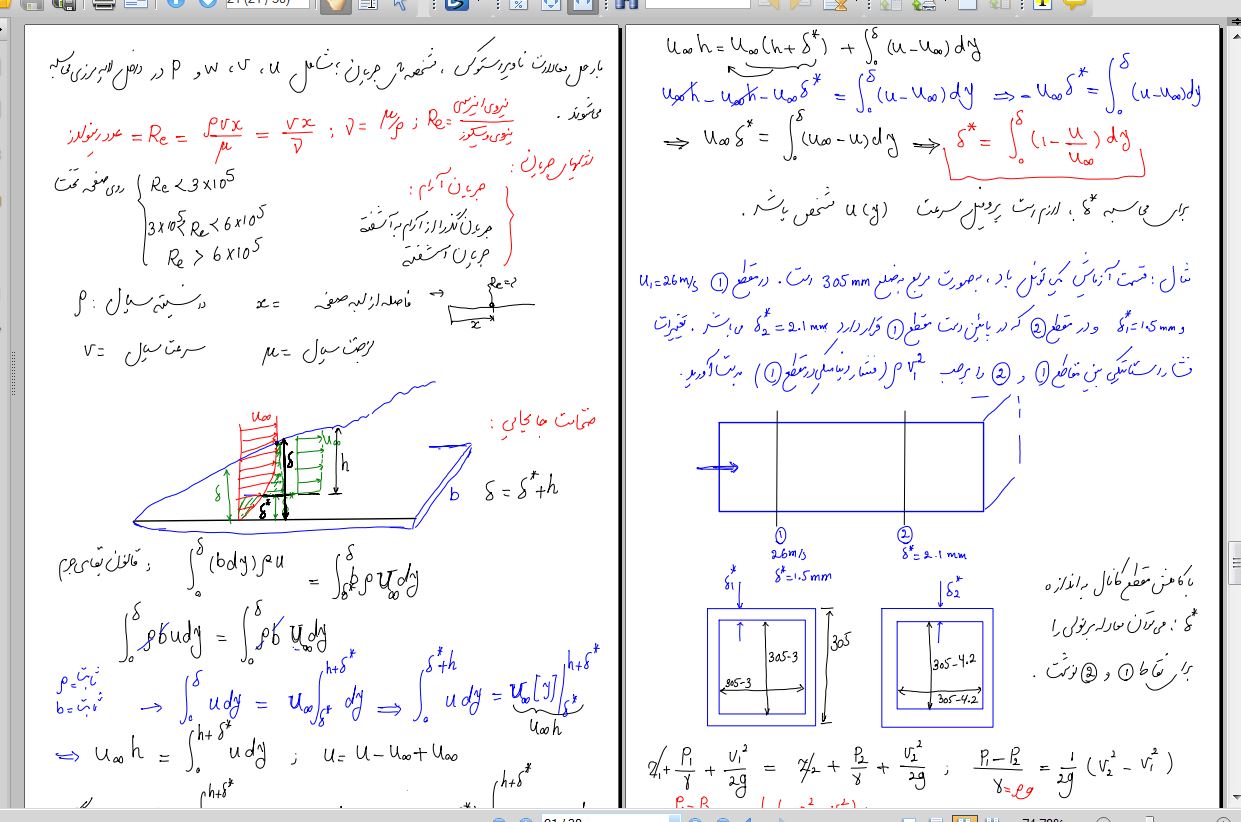 با حل معادلات ناویر استوکس، مشخصه های جریان؛ شامل u، v، w و P در داخل لایه مرزی محاسبه
می‌شوند.
عدد رینولدز = Re = ρvx/μ = vx/ν ; ν = μ/ρ ; Re = نیروی اینرسی/نیروی ویسکوز
رژیمهای جریان:
جریان آرام: Re < 3×10^5 روی صفحه تخت
جریان گذرا از آرام به آشفته 3×10^5 < Re < 6×10^5
جریان آشفته Re > 6×10^5
ρ: دانسیته سیال x = فاصله از لبه صفحه ⇒ Re=? x
v = سرعت سیال μ = لزجت سیال
ضخامت جابجایی:
u∞ u∞ δ δ h δ* b
δ = δ* + h
قانون بقای جرم: ∫₀^δ (b dy) ρu = ∫_δ*^δ bρ U∞ dy
∫₀^δ ρb u dy = ∫₀^δ ρb U∞ dy
ρ = ثابت
b = ثابت
→ ∫₀^δ u dy = u∞ ∫_δ*^(h+δ*) dy ⇒ ∫₀^(δ*+h) u dy = u∞ [y]_δ*^(h+δ*)
u∞h
⇒ u∞ h = ∫₀^(h+δ*) u dy ; u = u − u∞ + u∞
h+δ*
u∞h = u∞(h+δ*) + ∫₀^δ (u−u∞) dy
u∞h − u∞h − u∞δ* = ∫₀^δ (u−u∞) dy ⇒ −u∞δ* = ∫₀^δ (u−u∞) dy
⇒ u∞δ* = ∫₀^δ (u∞−u) dy ⇒ δ* = ∫₀^δ (1 − u/u∞) dy
برای محاسبه δ*، لازم است پروفیل سرعت u(y) مشخص باشد.
مثال: قسمت آزمایش یک تونل باد، به صورت مربع به ضلع 305 mm است. در مقطع ① u₁=26 m/s
و δ₁*=1.5 mm و در مقطع ② که در پایین دست مقطع ① قرار دارد δ₂*=2.1 mm می باشد. تغییرات
فشار استاتیکی بین مقاطع ① و ② را برحسب ρv₁² (فشار دینامیکی در مقطع ①) بدست آورید.
① ②
26 m/s δ*=2.1 mm
δ*=1.5 mm
δ₁* δ₂*
305-3 305-3 305
305-4.2 305-4.2
با کاهش مقطع کانال به اندازه
δ*؛ می‌توان معادله برنولی را
برای نقاط ① و ② نوشت.
z₁ + P₁/γ + v₁²/2g = z₂ + P₂/γ + v₂²/2g ; (P₁−P₂)/γ = 1/2g (v₂² − v₁²)
γ=ρg